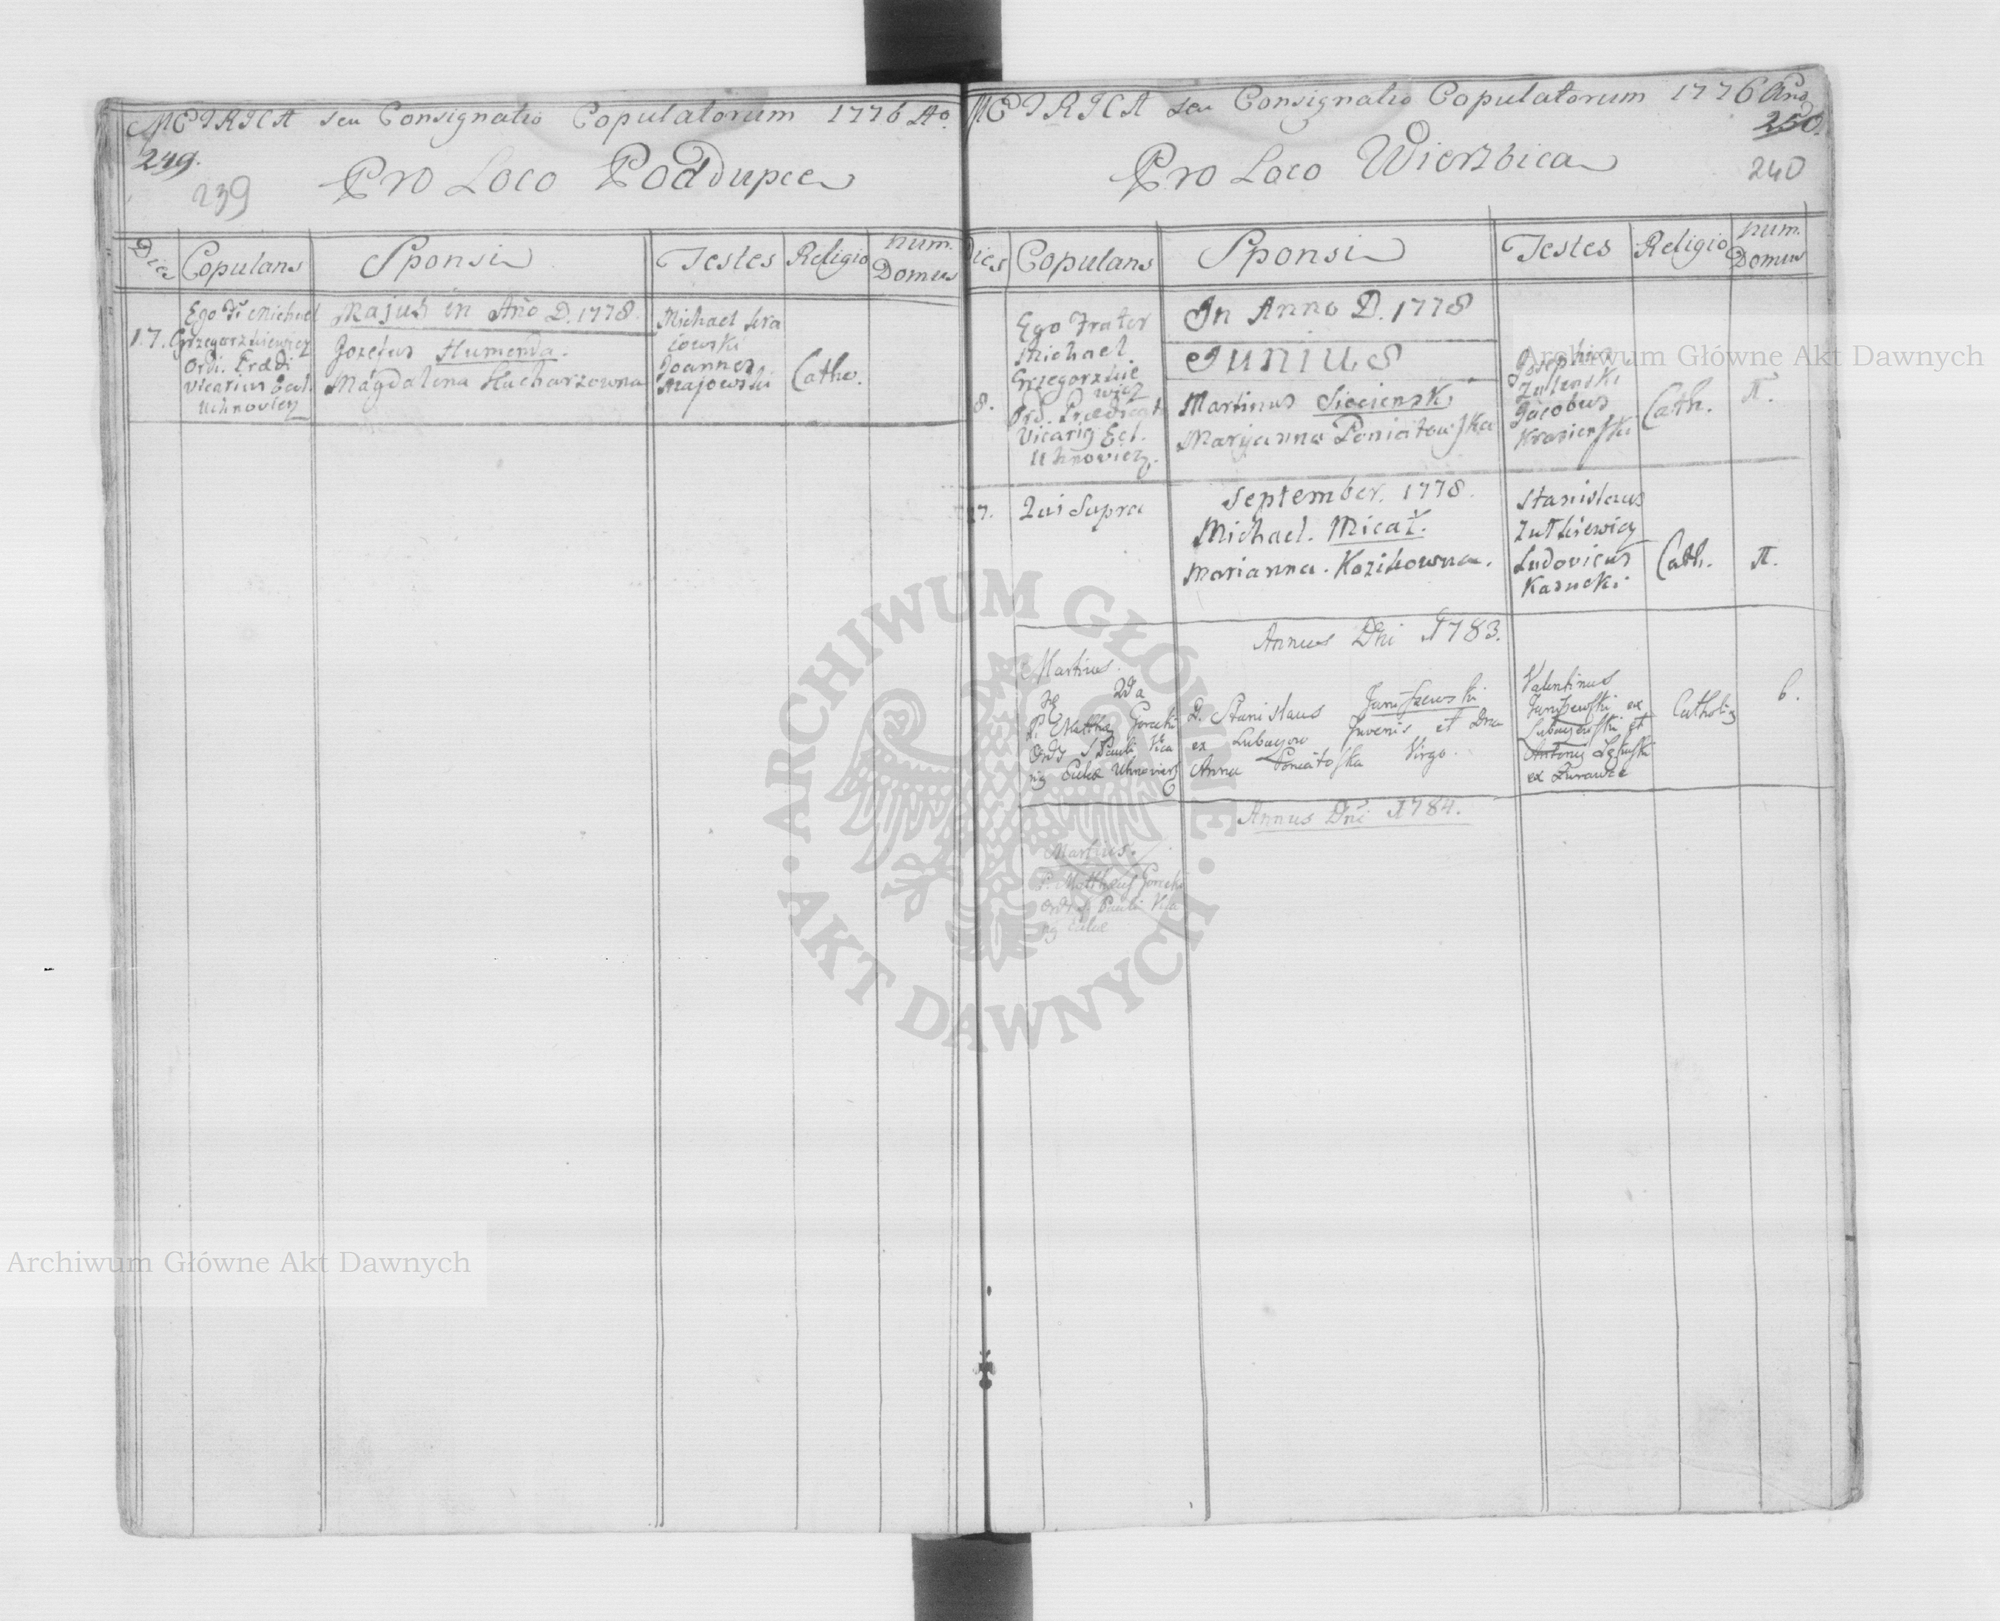 METRICA seu Consignatio Copulatorum 1776 Ao.
249.
239
Pro Loco Poddupce
Dies
Copulans
Sponsi
Testes
Religio
Num.
Domus
17.
Ego Fr Michael
Grzegorzkiewicz
Ordi. Prædi
Vicarius Eccl.
Uhnovien
Majus in Año D. 1778.
Jozefus Humenda.
Magdalena Kucharzowna
Michael
Joannes
Majowski
Catho.
METRICA seu Consignatio Copulatorum 1776 Año
250.
240
Pro Loco Wierzbica
Dies
Copulans
Sponsi
Testes
Religio
Num.
Domus
8.
Ego Frater
Michael
Grzegorzkie
wicz
Ord. Prædicat
Vicari9 Ecl.
Uhnovien.
In Anno D. 1778
Junius
Martinus Siecienski
Maryanna Poniatowska
Josephus
Zulenski
Jacobus
Krasienski
Cath.
π.
17.
Qui Supra
September. 1778.
Michael. Micał.
Marianna. Kozikowna.
Stanislaus
Zutkiewicz
Ludovicus
Kasucki
Cath.
π.
Annus Dñi 1783.
Martius.
P. Matthæ9 Gorecki
Ordi9 S Pauli Vica
ri9 Ecclæ Uhnovien
D. Stanislaus Janiszewski
ex Lubaczow Juvenis et Dna
Anna Poniatoska Virgo.
Valentinus
Janiszewski ex
et
Antoni9
ex Zurawce
Catholi9
6.
Annus Dñi 1784.
Martius.
P. Matthæus Gorecki
Ord S. Pauli Vica
ri9 Ecclæ
ARCHIWUM GŁÓWNE AKT DAWNYCH
Archiwum Główne Akt Dawnych
Archiwum Główne Akt Dawnych